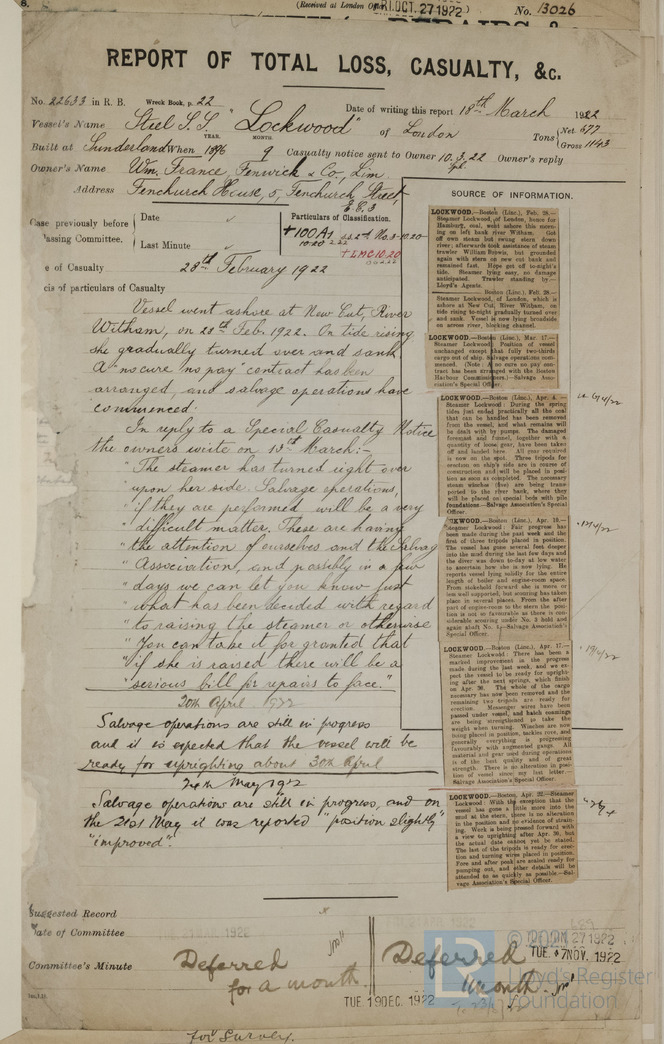 (Received at London Office FRI. OCT. 27 1922) No. 13026
REPORT OF TOTAL LOSS, CASUALTY, &c.
No. 22633 in R. B. Wreck Book, p. 22 Date of writing this report 18th March 1922
Vessel's Name Steel S.S. "Lockwood" of London
Tons Net 677 Gross 1143
YEAR. MONTH.
Built at Sunderland When 1896 9 Casualty notice sent to Owner 10.3.22 Owner's reply
Owner's Name Wm. France, Fenwick & Co., Lim.
Address Fenchurch House, 5, Fenchurch Street,
E.C.3
Case previously before
assing Committee.
Date
Last Minute
Particulars of Classification.
+100A1
+LMC 10.20
e of Casualty 28th February 1922
cis of particulars of Casualty
Vessel went ashore at New Cut, River
Witham, on 28th Feb. 1922. On tide rising
she gradually turned over and sank.
A "no cure no pay" contract has been
arranged, and salvage operations have
commenced.
In reply to a Special Casualty Notice
the owners write on 13th March:-
"The steamer has turned right over
upon her side. Salvage operations,
"if they are performed will be a very
"difficult matter. These are having
"the attention of ourselves and the Salvage
"Association, and possibly in a few
"days we can let you know just
"what has been decided with regard
"to raising the steamer or otherwise
"You can take it for granted that
"if she is raised there will be a
"serious bill for repairs to face."
20th April 1922
Salvage operations are still in progress
and it is expected that the vessel will be
ready for uprighting about 30th April
May 1922
Salvage operations are still in progress, and on
the 21st May it was reported "position slightly
"improved".
SOURCE OF INFORMATION.
LOCKWOOD.—Boston (Linc.), Feb. 28.—
Steamer Lockwood, of London, hence for
Hamburg, coal, went ashore this morn-
ing on left bank river Witham. Got
off own steam but swung stern down
river; afterwards took assistance of steam
trawler William Brown, but grounded
again with stern on new cut bank and
remained fast. Hope get off to-night's
tide. Steamer lying easy, no damage
anticipated. Trawler standing by.—
Lloyd's Agents.
Boston (Linc.), Feb. 28.—
Steamer Lockwood, of London, which is
ashore at New Cut, River Witham, on
tide rising to-night gradually turned over
and sank. Vessel is now lying broadside
on across river, blocking channel.
LOCKWOOD.—Boston (Linc.), Mar. 17.—
Steamer Lockwood: Position of vessel
unchanged except that fully two-thirds
cargo out of ship. Salvage operations com-
menced. (Note: A no cure no pay con-
tract has been arranged with the Boston
Harbour Commissioners.)—Salvage Asso-
ciation's Special Officer.
LOCKWOOD.—Boston (Linc.), Apr. 4.—
Steamer Lockwood: During the spring
tides just ended practically all the coal
that can be handled has been removed
from the vessel, and what remains will
be dealt with by pumps. The damaged
forepeak and funnel, together with a
quantity of loose gear, have been taken
off and landed here. All gear required
is now on the spot. Three tripods for
erection on ship's side are in course of
construction and will be placed in posi-
tion as soon as completed. The necessary
steam winches (four) are being trans-
ported to the river bank, where they
will be placed on special beds with pile
foundations.—Salvage Association's Special
Officer.
LOCKWOOD.—Boston (Linc.), Apr. 10.—
Steamer Lockwood: Fair progress has
been made during the past week and the
first of three tripods placed in position.
The vessel has gone several feet deeper
into the mud during the last few days and
the diver was down to-day at low water
to ascertain how she is now lying. He
reports vessel lying solidly for the entire
length of boiler and engine-room space.
From stokehold forward she is more or
less well supported, but scouring has taken
place in several places. From the after
part of engine-room to the stern the posi-
tion is not so favourable as there is con-
siderable scouring under No. 3 hold and
again abaft No. 4.—Salvage Association's
Special Officer.
LOCKWOOD.—Boston (Linc.), Apr. 17.—
Steamer Lockwood: There has been a
marked improvement in the progress
made during the last week, and we ex-
pect the vessel to be ready for upright-
ing after the next springs, which finish
on Apr. 30. The whole of the cargo
necessary has now been removed and the
remaining two tripods are ready for
erection. Messenger wires have been
passed under vessel, and hatch coamings
are being strengthened to take the
weight when turning. Winches are now
being placed in position, tackles rove, and
generally everything is progressing
favourably with augmented gangs. All
material and gear used during operations
is of the best quality and of great
strength. There is no alteration in posi-
tion of vessel since my last letter.—
Salvage Association's Special Officer.
LOCKWOOD.—Boston (Linc.), Apr. 22.—Steamer
Lockwood: With the exception that the
vessel has gone a little more into the
mud at the stern, there is no alteration
in the position and no evidence of strain-
ing. Work is being pressed forward with
a view to uprighting after Apr. 30, but
the actual date cannot yet be stated.
The last of the tripods is ready for erec-
tion and turning wires placed in position.
Fore and after peak are sealed ready for
pumping out, and other details will be
attended to as quickly as possible.—Sal-
vage Association's Special Officer.
Suggested Record
Date of Committee
Committee's Minute
Deferred
for a month.
Deferred
month.
TUE. 7 NOV. 1922
TUE 19 DEC. 1922
© 2021
Lloyd's Register
Foundation
for Survey.